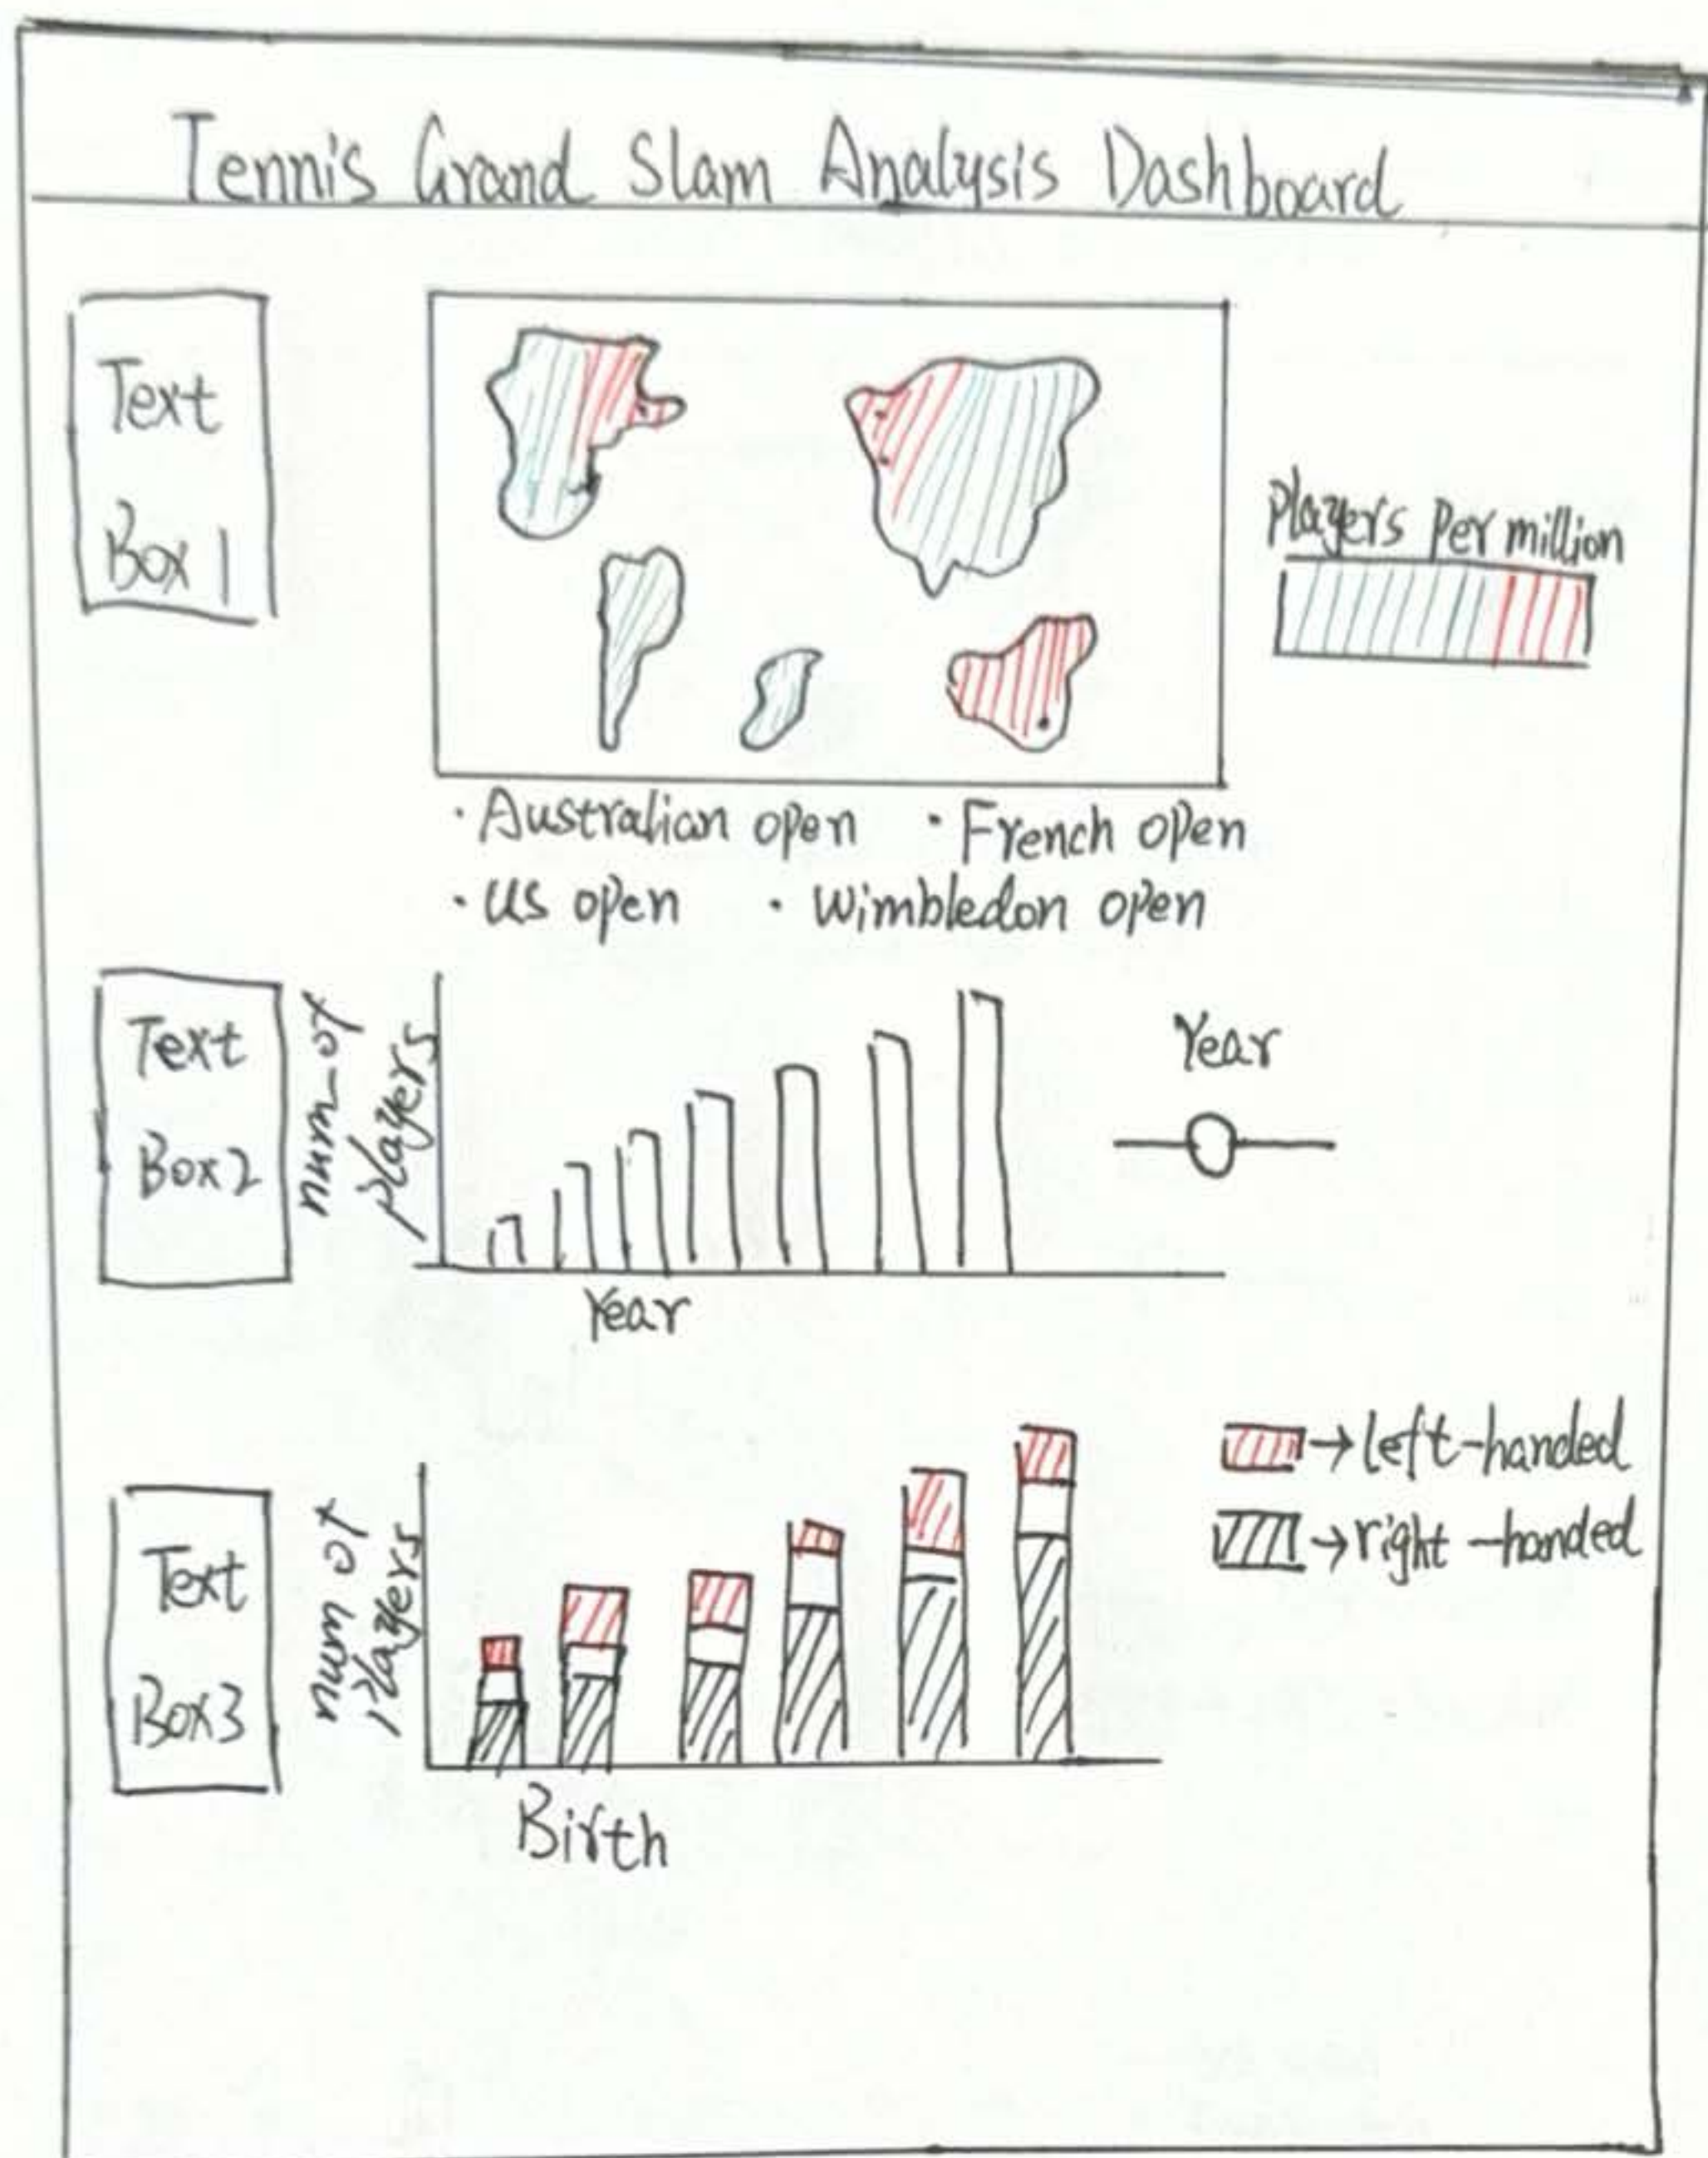 Tennis Grand Slam Analysis Dashboard
Text
Box 1
Players Per million
· Australian open · French open
· US open · Wimbledon open
Text
Box2
num_of
players
Year
Year
Text
Box3
num of
players
Birth
→ left-handed
→ right-handed